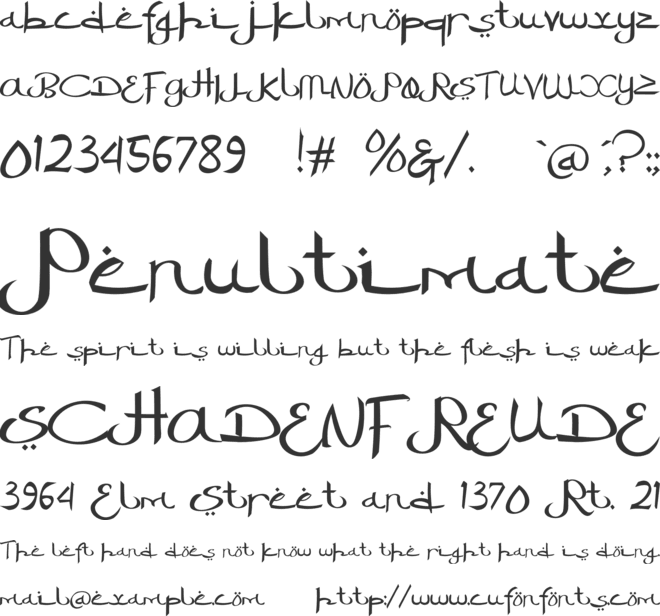 abcdefghijklmnopqrstuvwxyz
aBCDEFgHIJKLMNOPQRSTUVWXYZ
0123456789 !# %&/. `@´,?:;
Penultimate
The spirit is willing but the flesh is weak
SCHaDENFREUDE
3964 Elm Street and 1370 Rt. 21
The left hand does not know what the right hand is doing
mail@example.com http://www.cufonfonts.com